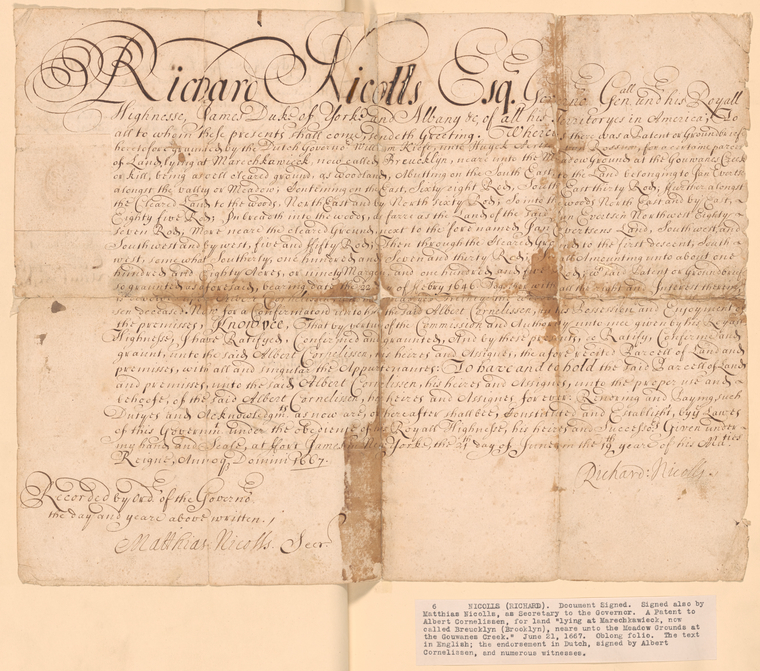 Richard Nicolls Esqr. Governo Genall under his Royall
Highnesse, James Duke of Yorke and Albany &c, of all his Territoryes in America, To
all to whom these presents shall come sendeth Greeting. Whereas there was a Patent or Groundbrief
heretofore graunted by the Dutch Governo William Kieft, unto Huyck Rossum, for a certaine parcell
of Land, lying at Marechkawieck, now called Breucklyn, neare unto the Meadow Ground at the Gouwanes Creek
or kill, being as well cleared ground, as woodland, Abutting on the South East, to the Land belonging to Jan Everts
alongst the valley or Meadow; Conteining on the East, Sixty eight Rod, South East thirty Rod, further alongst
the Cleared Land to the woods, North East and by North Sixty Rod; into the woods North East and by East,
Eighty five Rod; In breadth into the woods, as farre as the Land of the said Jan Evertsen Northwest Eighty
Seven Rod, More neare the cleared Ground, next to the fore named Jan Evertsens Land, Southwest, and
Southwest and by west, five and fifty Rod; Then through the Cleared Ground to the first descent, South
west, some what Southerly, one hundred and Seven and thirty Rod; Amounting unto about one
hundred and Eighty Acres, or ninety Margen and one hundred and five Rod, said Patent or Groundbrief
so graunted as aforesaid, bearing date the of Febry 1646 all the Right and Interest therein,
sen deceased. Now for a Confirmation unto the said Albert Cornelissen, in his Possession and Enjoyment of
the premisses, Know yee, That by vertue of the Commission and Authority unto mee given by his Royall
Highnesse, I have Ratifyed, Confirmed and graunted, And by these presents, do Ratify, Confirme and
graunt, unto the said Albert Cornelissen, his heires and Assignes, the afore recited Parcell of Land and
premisses, with all and singular the Appurtenances: To have and to hold the said Parcell of Land
and premisses, unto the said Albert Cornelissen, his heires and Assignes, unto the proper use and
behoofe, of the said Albert Cornelissen, his heires and Assignes for ever: Rendring and Paying such
Dutyes and Acknowledgmts as now are, or hereafter shall bee, Constituted and Establisht, by ye Lawes
of this Governmt under the obedience of his Royall Highnesse, his heires and Successors. Given under
my hand and Seale, at Fort James in New Yorke, the day of June in the 19th yeare of his Maties
Reigne, Annoq Domini 1667.
Richard: Nicolls.
Recorded by Ordr of the Governo
the day and yeare above written.
Matthias Nicolls. Secr.
6 NICOLLS (RICHARD). Document Signed. Signed also by
Matthias Nicolls, as Secretary to the Governor. A Patent to
Albert Cornelissen, for land "lying at Marechkawieck, now
called Breucklyn (Brooklyn), neare unto the Meadow Grounds at
the Gouwanes Creek." June 21, 1667. Oblong folio. The text
in English; the endorsement in Dutch, signed by Albert
Cornelissen, and numerous witnesses.